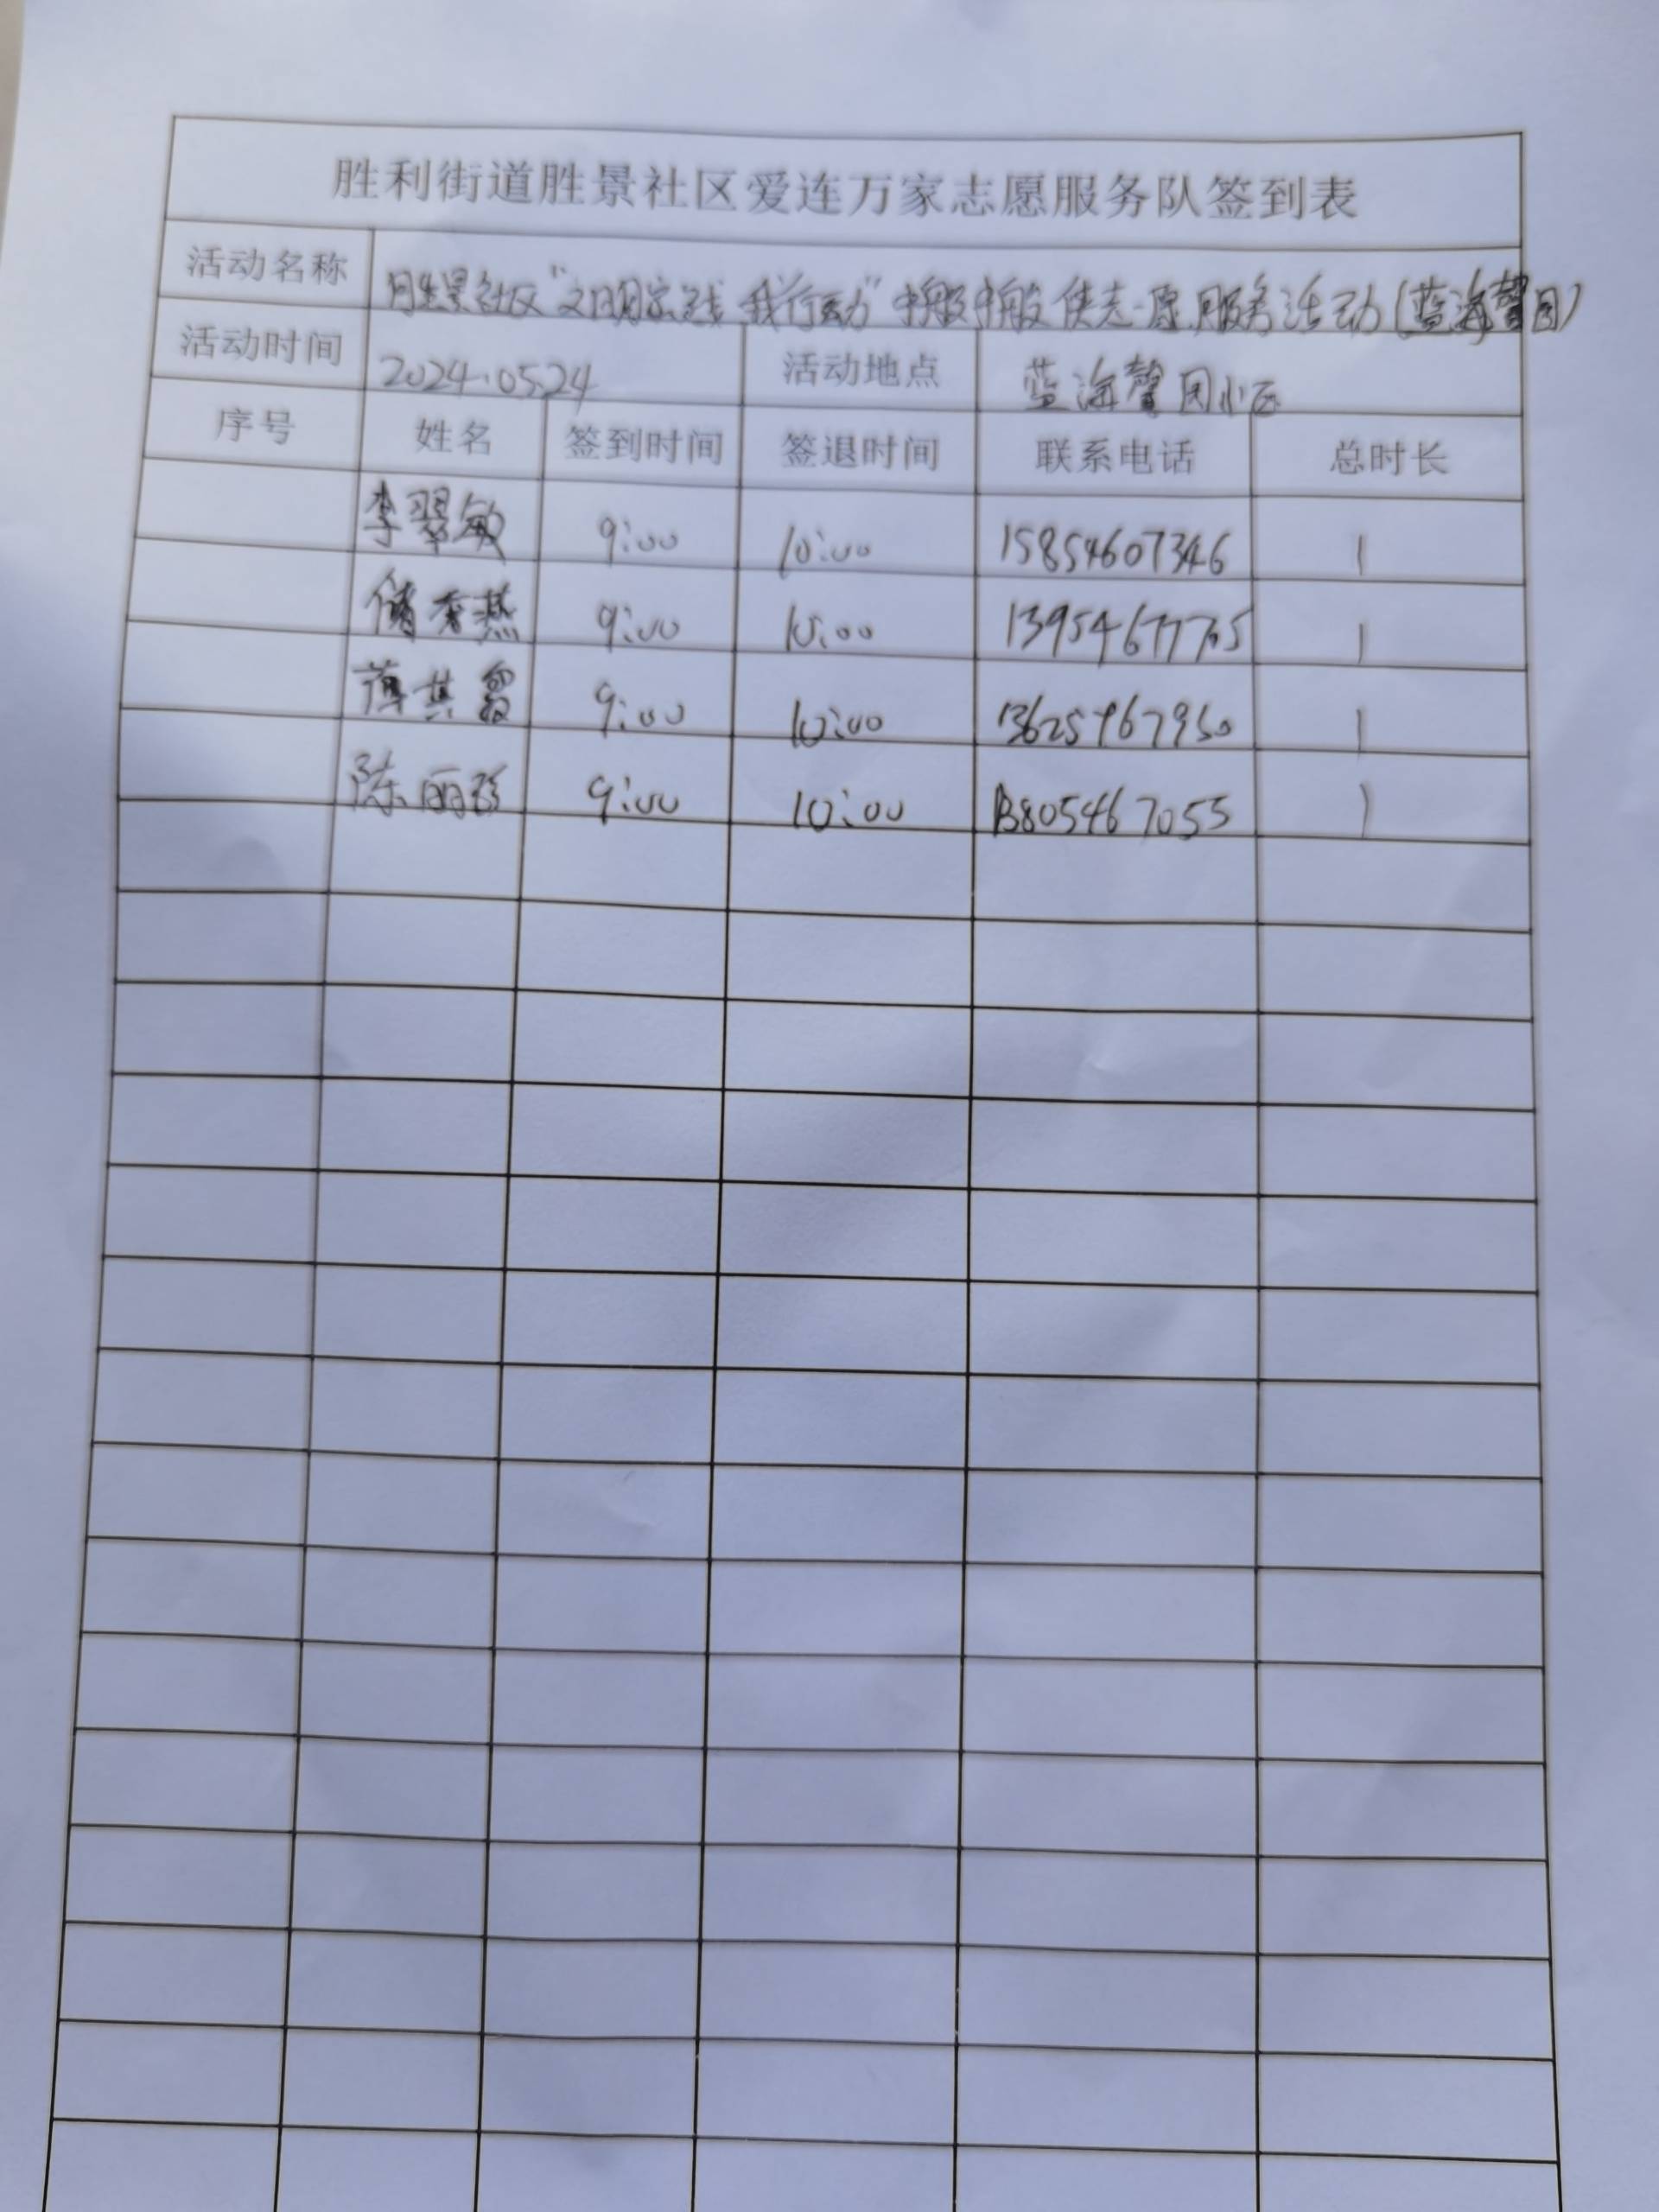 胜利街道胜景社区爱连万家志愿服务队签到表
活动名称 胜景社区"文明实践 我行动" 志愿服务活动(蓝海馨园)
活动时间 2024.05.24 活动地点 蓝海馨园小区
序号 姓名 签到时间 签退时间 联系电话 总时长
李翠敏 9:00 10:00 15854607346 1
储秀燕 9:00 10:00 13954677705 1
薄其 9:00 10:00 13625467950 1
陈丽珍 9:00 10:00 13805467055 1